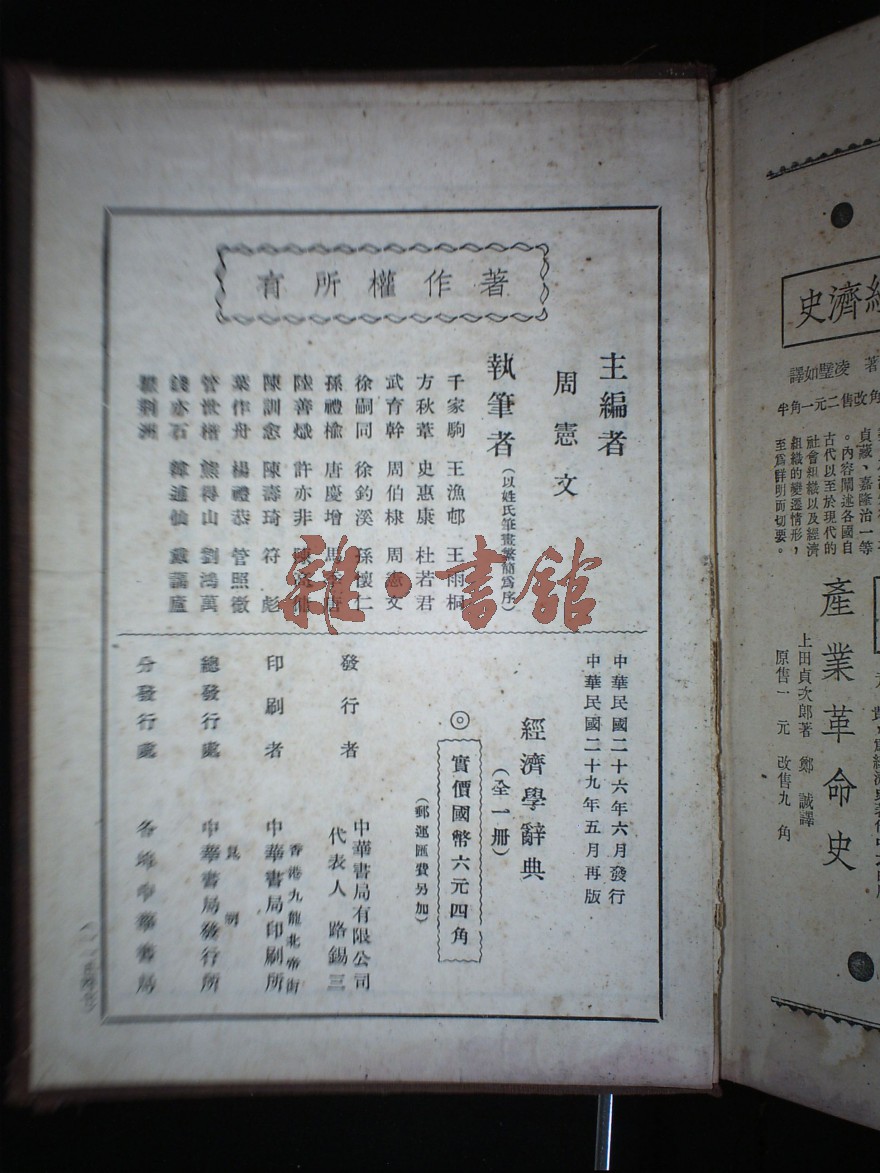 著作權所有
主編者
周憲文
執筆者（以姓氏筆畫繁簡爲序）
千家駒 王漁邨 王雨桐
方秋葦 史惠康 杜若君
武育幹 周伯棣 周憲文
徐嗣同 徐鈞溪 孫懷仁
孫禮榆 唐慶增 馬季唐
陸善熾 許亦非
陳訓悆 陳壽琦 符彪
葉作舟 楊禮恭 管照微
熊得山 劉鴻萬
錢亦石 戴藹廬
中華民國二十六年六月發行
中華民國二十九年五月再版
經濟學辭典
（全一册）
◎
實價國幣六元四角
（郵運匯費另加）
發行者
中華書局有限公司
代表人 路錫三
印刷者
香港九龍北帝街
中華書局印刷所
總發行處
昆明
中華書局發行所
分發行處
各埠中華書局
雜·書館
經濟史
著 凌璧如譯
角改售二元一角半
貞藏、嘉隆治一等
。內容闡述各國自
古代以至於現代的
社會組織以及經濟
組織的變遷情形，
至爲詳明而切要。
產業革命史
上田貞次郎著 鄭誠譯
原售一元 改售九角